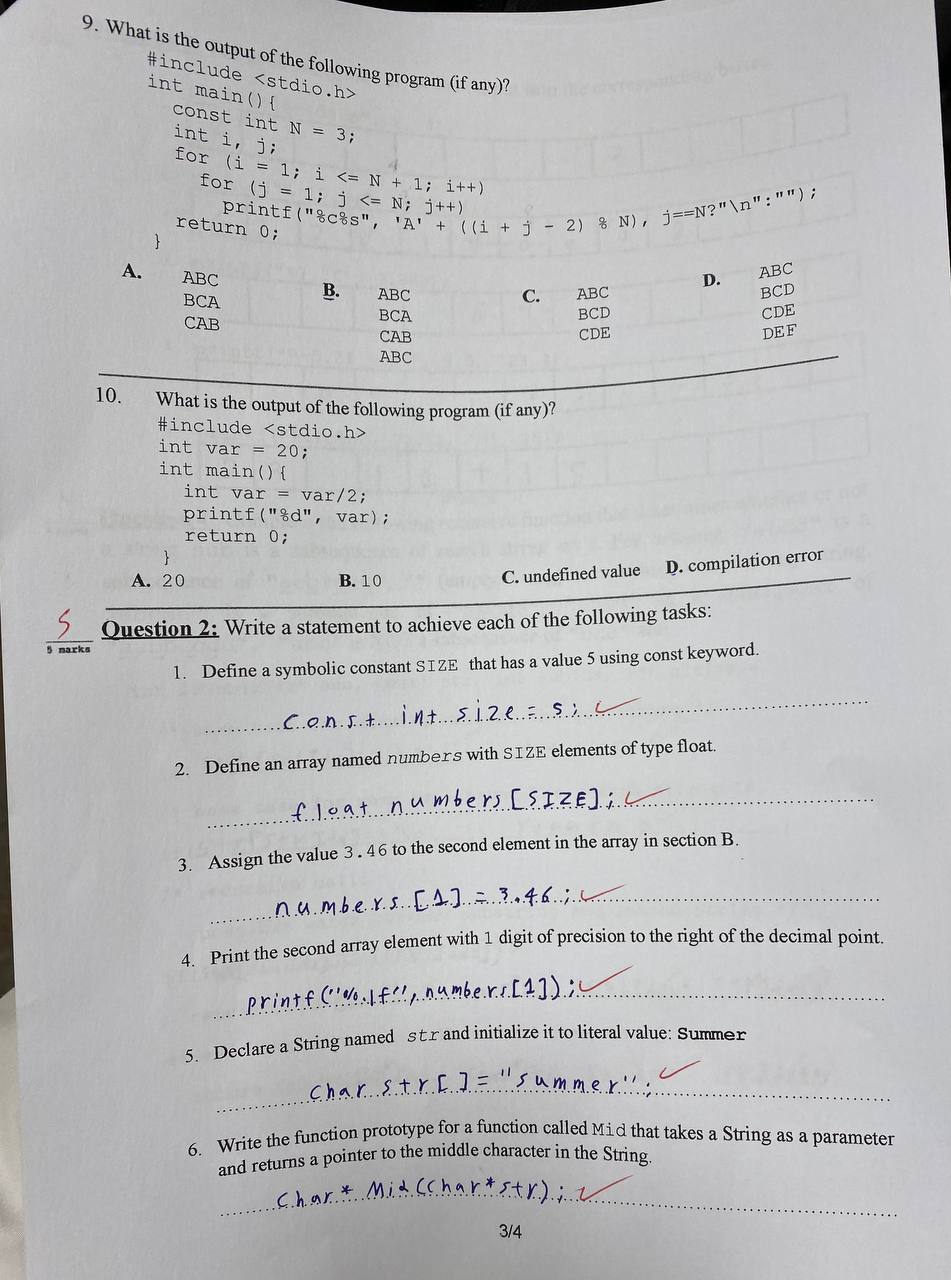 9. What is the output of the following program (if any)?
#include <stdio.h>
int main(){
const int N = 3;
int i, j;
for (i = 1; i <= N + 1; i++)
for (j = 1; j <= N; j++)
printf("%c%s", 'A' + ((i + j - 2) % N), j==N?"\n":"");
return 0;
}
A. B. C. D.
ABC ABC ABC ABC
BCA BCA BCD BCD
CAB CAB CDE CDE
ABC DEF
10. What is the output of the following program (if any)?
#include <stdio.h>
int var = 20;
int main(){
int var = var/2;
printf("%d", var);
return 0;
}
A. 20 B. 10 C. undefined value D. compilation error
5
5 marks
Question 2: Write a statement to achieve each of the following tasks:
1. Define a symbolic constant SIZE that has a value 5 using const keyword.
const int size = 5;
2. Define an array named numbers with SIZE elements of type float.
float numbers [SIZE];
3. Assign the value 3.46 to the second element in the array in section B.
numbers [1] = 3.46;
4. Print the second array element with 1 digit of precision to the right of the decimal point.
printf("%.1f", numbers[1]);
5. Declare a String named str and initialize it to literal value: Summer
char str[ ] = "summer";
6. Write the function prototype for a function called Mid that takes a String as a parameter
and returns a pointer to the middle character in the String.
char* Mid (char*str);
3/4